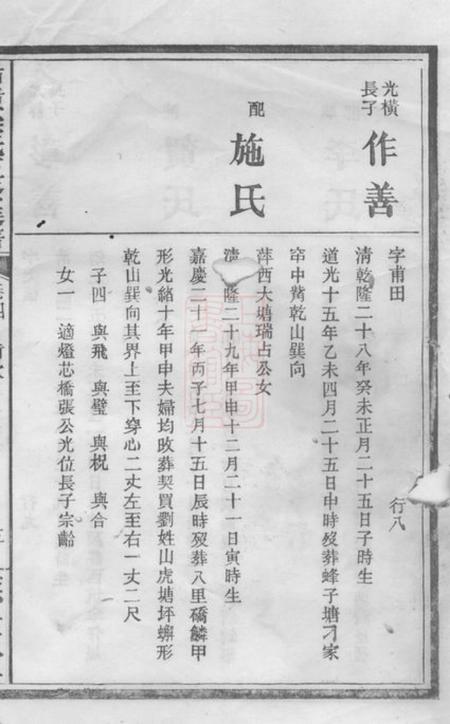 光橫
長子
作善
配
施氏
字甫田 行八
清乾隆二十八年癸未正月二十五日子時生
道光十五年乙未四月二十五日申時歿葬蜂子塘刁家
窂中嘴乾山巽向
萍西大塘瑞占公女
清 隆二十九年甲申十二月二十一日寅時生
嘉慶二十一年丙子七月十五日辰時歿葬八里礄鱗甲
形光緒十年甲申夫婦均改葬契買劉姓山虎塘坪螄形
乾山巽向其界上至下穿心二丈左至右一丈二尺
子四 與飛 與璧 與柷 與合
女一 適燈芯橋張公光位長子宗齡